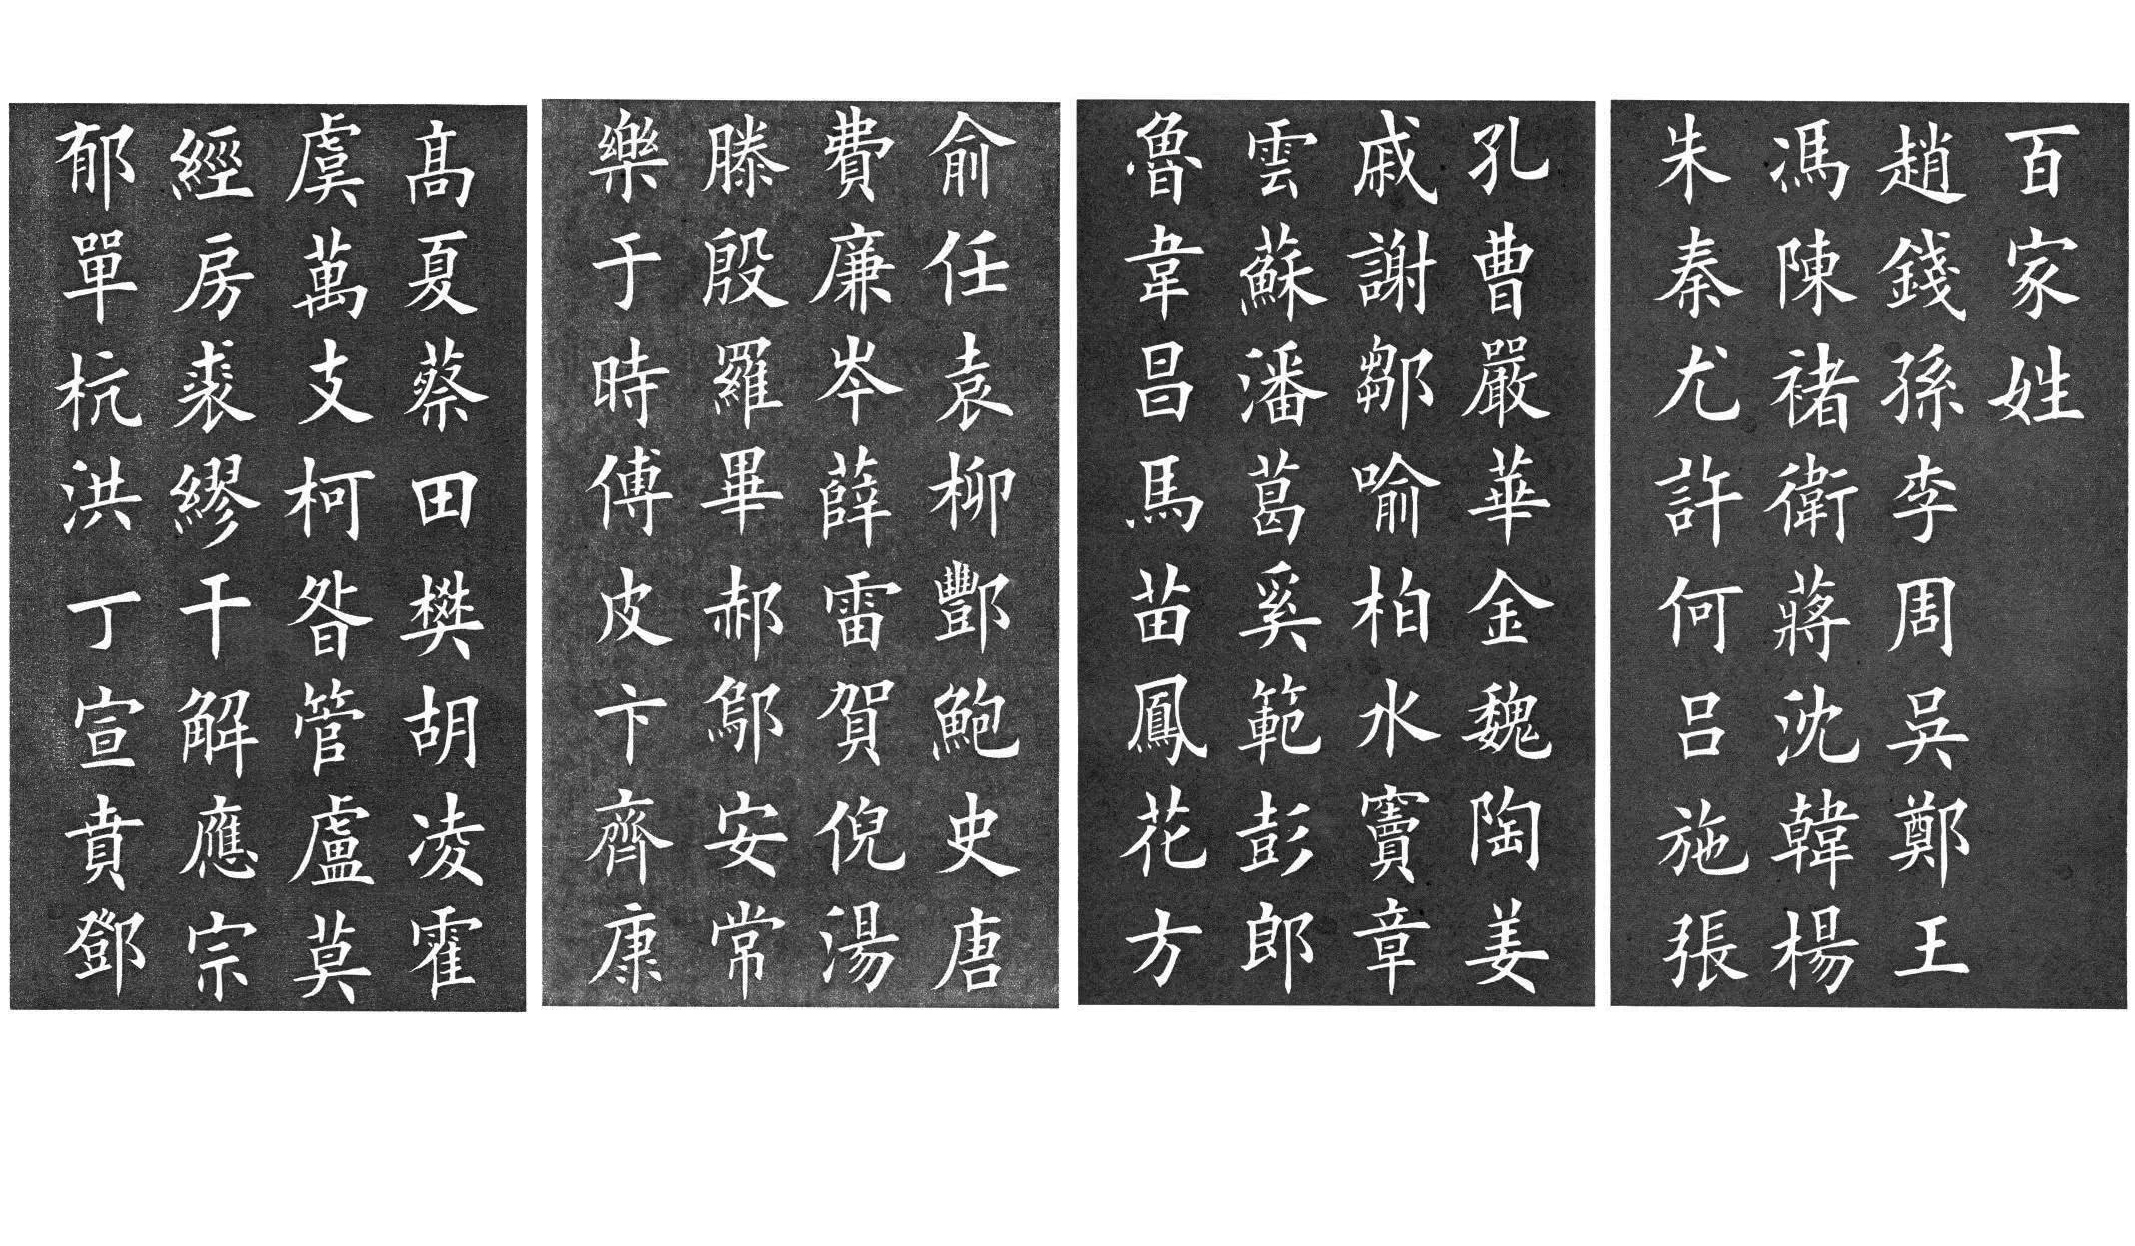 百家姓
趙錢孫李周吳鄭王
馮陳褚衛蔣沈韓楊
朱秦尤許何呂施張
孔曹嚴華金魏陶姜
戚謝鄒喻柏水竇章
雲蘇潘葛奚範彭郎
魯韋昌馬苗鳳花方
俞任袁柳酆鮑史唐
費廉岑薛雷賀倪湯
滕殷羅畢郝鄔安常
樂于時傅皮卞齊康
髙夏蔡田樊胡凌霍
虞萬支柯昝管盧莫
經房裘繆干解應宗
郁單杭洪丁宣賁鄧